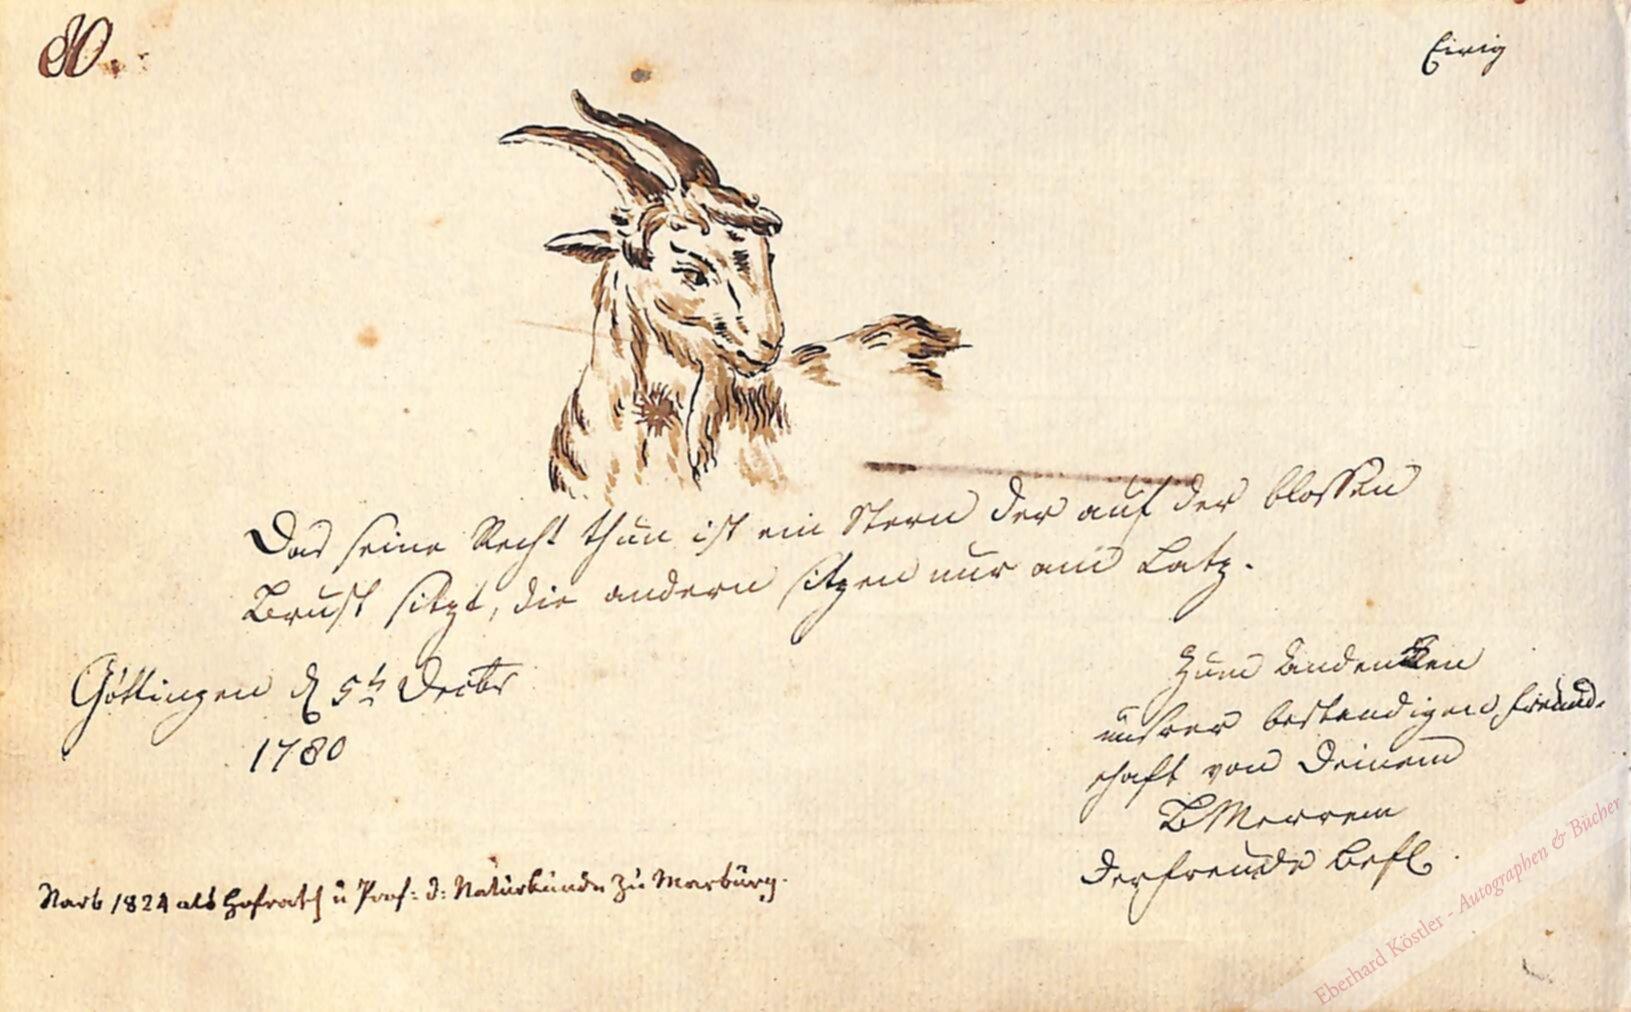 80.
Ewig
Das seine Recht thun ist ein Stern der auf der blossen
Brust sitzt, die andern sitzen nur am Latz.
Göttingen d 5t Decbr
1780
Zum Andenken
unsrer bestendigen Freund-
schaft von Deinem
B Merrem
der Freunde Befl.
Starb 1824 als Hofrath u Prof: d: Naturkunde zu Marburg.
Eberhard Köstler - Autographen & Bücher